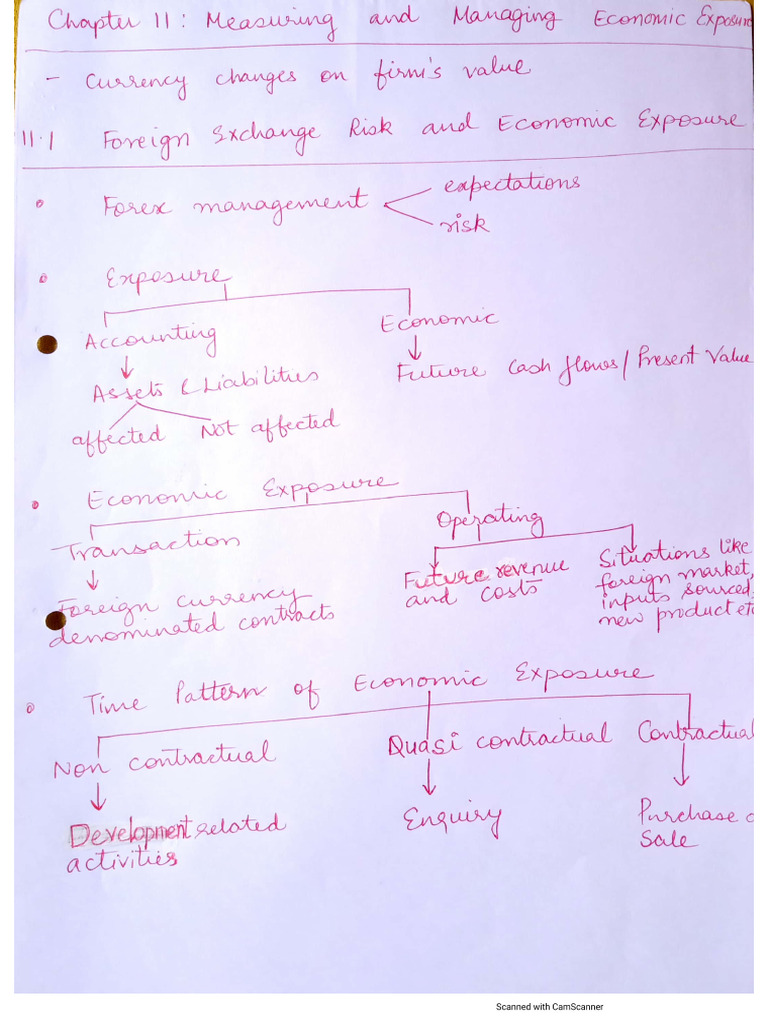 Chapter 11: Measuring and Managing Economic Exposure
- Currency changes on firm's value
11.1 Foreign Exchange Risk and Economic Exposure
Forex management
expectations
risk
Exposure
Accounting
Economic
Assets & Liabilities
Future Cash flows / Present Value
affected Not affected
Economic Exposure
Transaction
Operating
Foreign currency
denominated contracts
Future revenue
and costs
Situations like
foreign market,
inputs sourced,
new product etc
Time Pattern of Economic Exposure
Non contractual
Quasi contractual
Contractual
Development related
activities
Enquiry
Purchase
Sale
Scanned with CamScanner